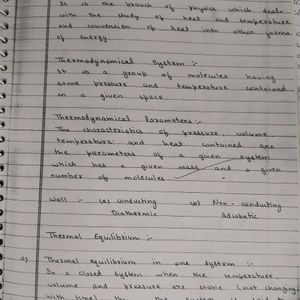 It is the branch of physics which deals
with the study of heat and temperature
and conversion of heat into other forms
of energy.
Thermodynamical System :-
It is a group of molecules having
same pressure and temperature contained
in a given space
Thermodynamical Parameters :-
The characteristics of pressure, volume,
temperature and heat contained are
the parameters of a given system
which has a given mass and a given
number of molecules.
Wall :- (a) conducting (b) Non-conducting
Diathermic Adiabatic
Thermal Equilibrium :-
a) Thermal equilibrium in one system :-
In a closed system when the temperature,
volume and pressure are stable (not changing
with time) the system is said to